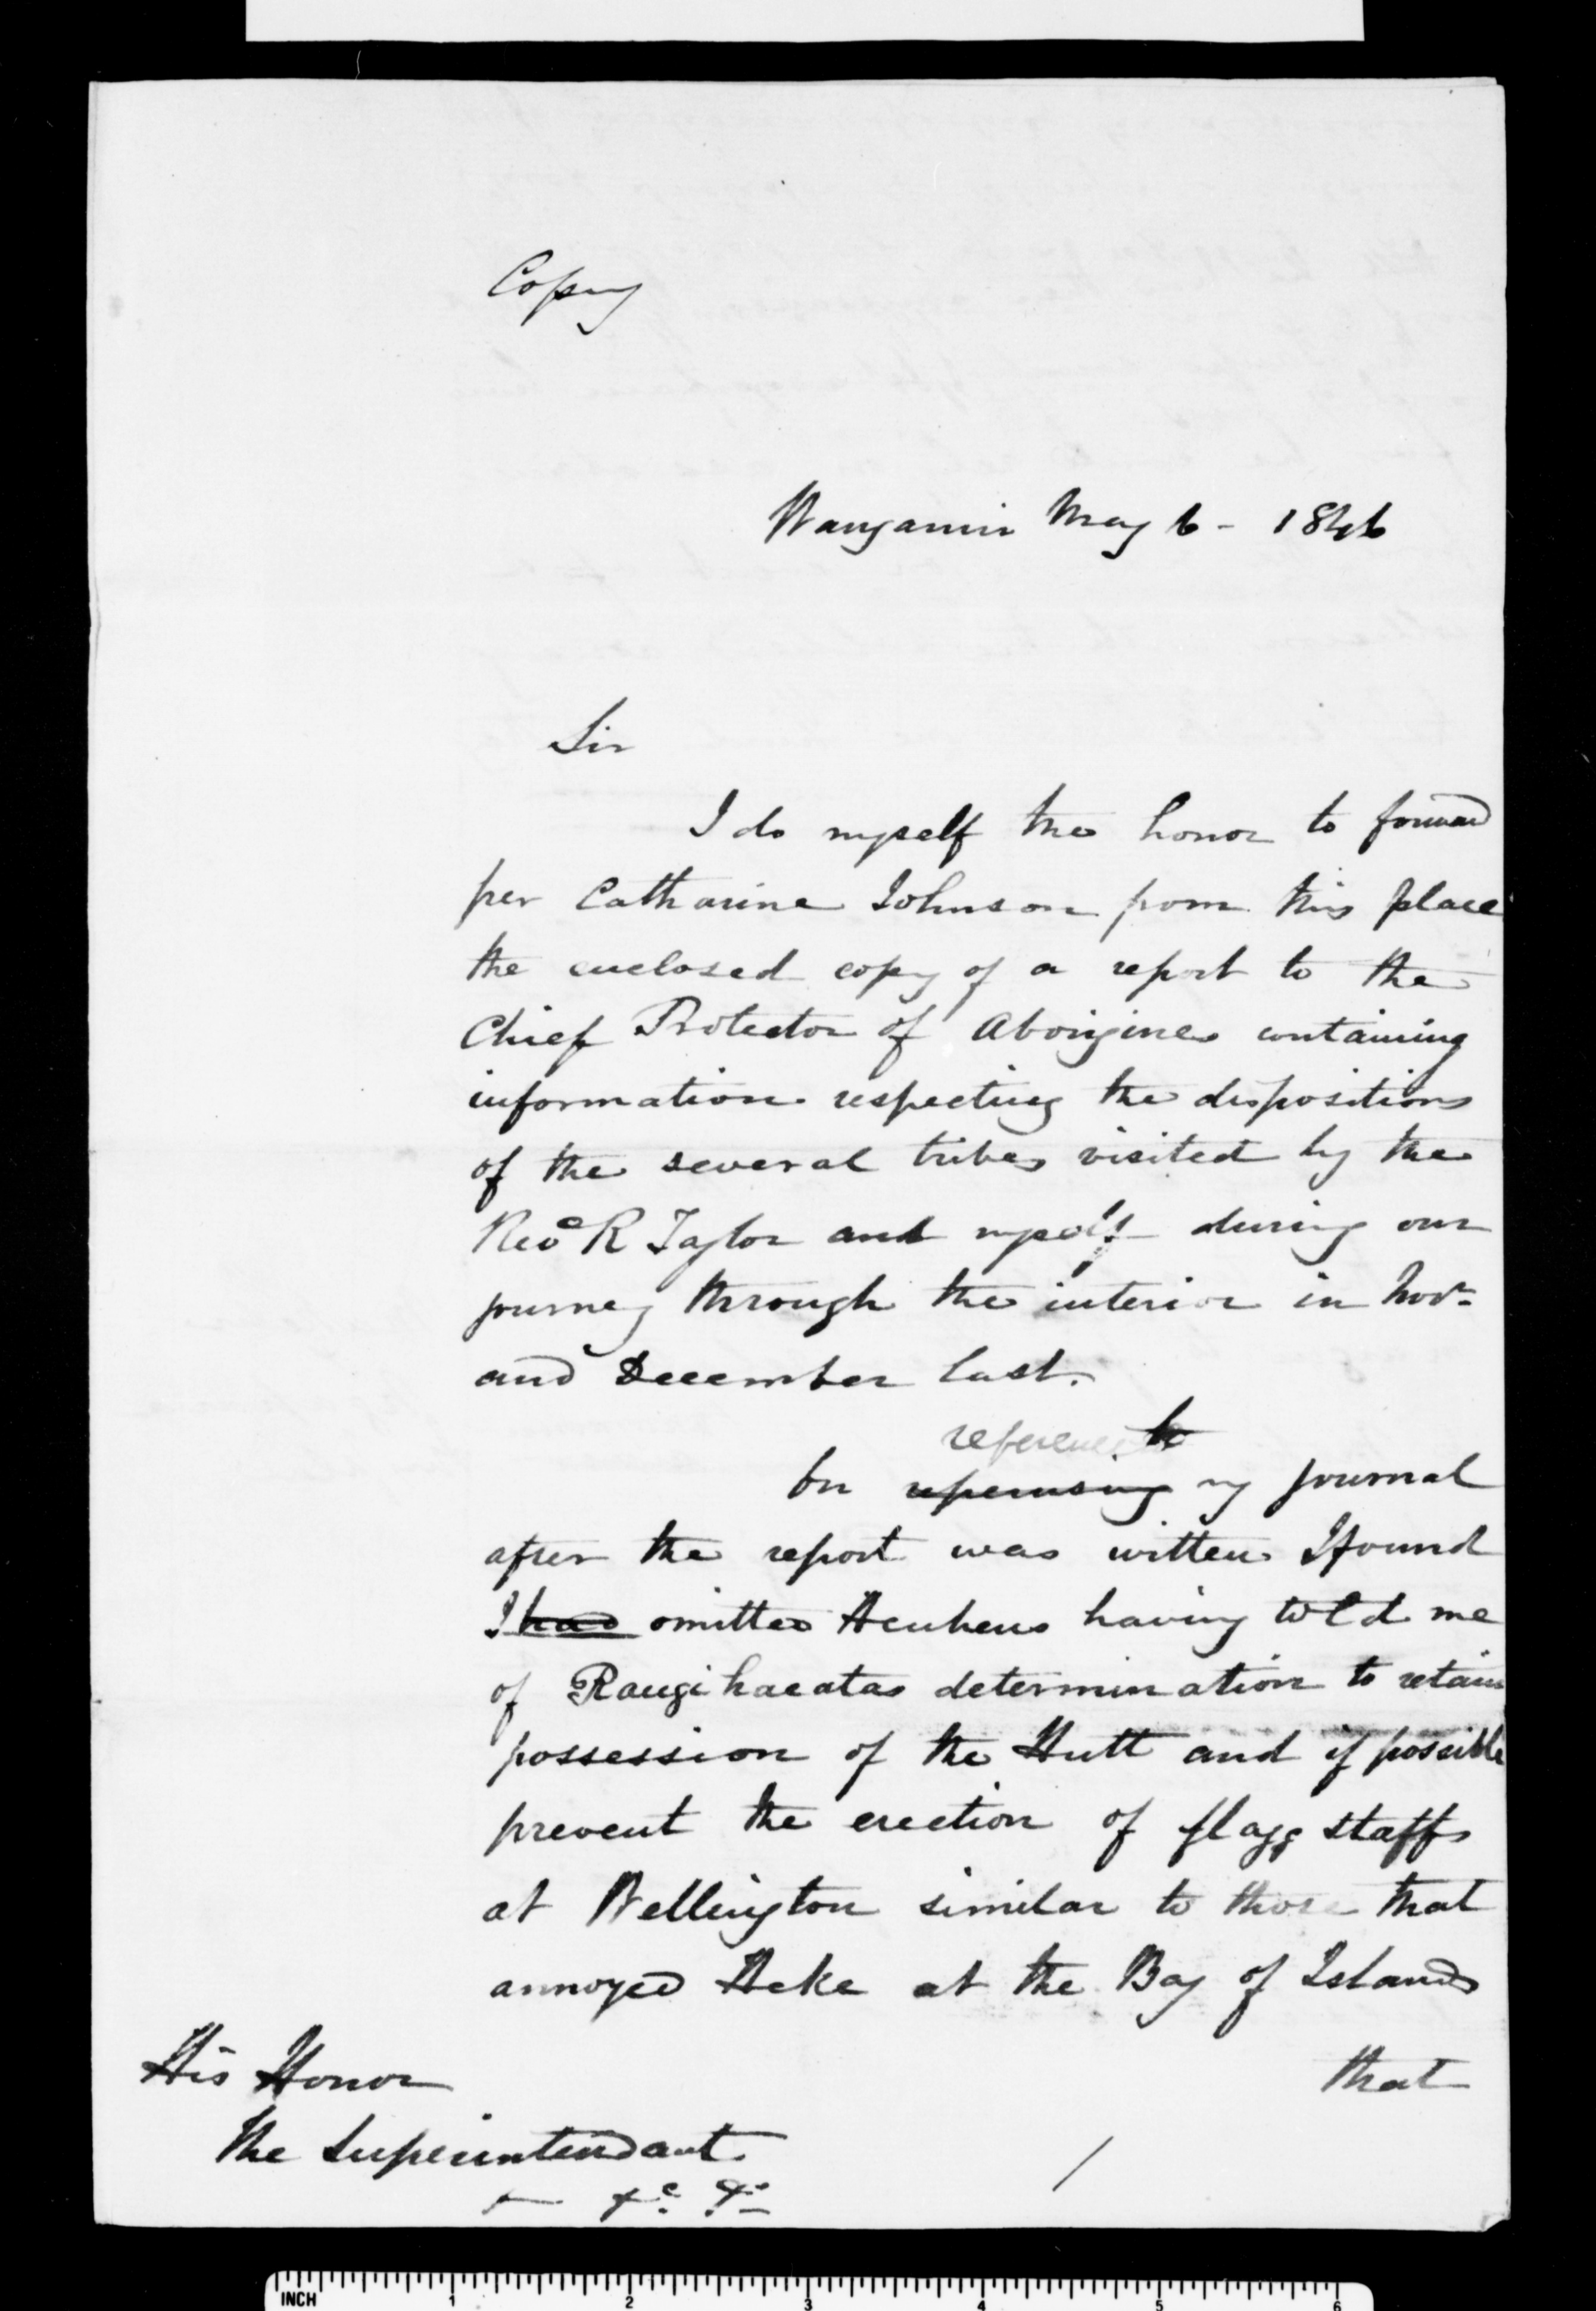 Copy
Wanganui May 6 - 1846
Sir
I do myself the honor to forward
per Catharine Johnson from this place
the enclosed copy of a report to the
Chief Protector of Aborigines containing
information respecting the dispositions
of the several tribes visited by the
Revd R Taylor and myself during our
journey through the interior in Novr
and December last.
reference to
On reperusing my journal
after the report was written I found
I had omitted Heuheus having told me
of Rangihaeatas determination to retain
possession of the Hutt and if possible
prevent the erection of flagg staffs
at Wellington similar to those that
annoyed Heke at the Bay of Islands
that
His Honor
The Superintendant
&c &c
/
INCH 1 2 3 4 5 6